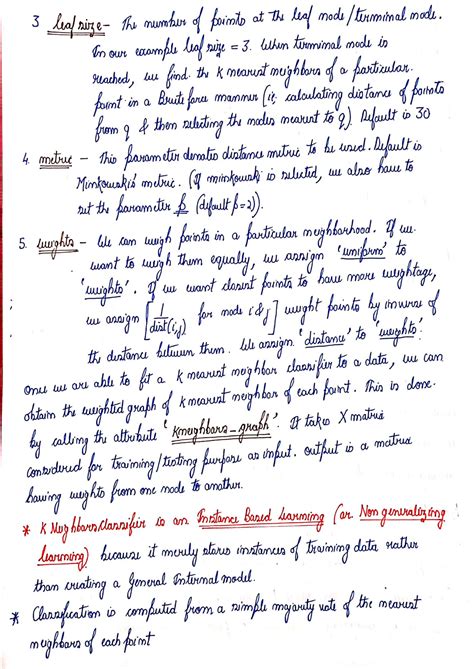 3 leaf size - The number of points at the leaf node/terminal node.
In our example leaf size = 3. When terminal node is
reached, we find the K nearest neighbors of a particular
point in a Brute force manner (ie, calculating distance of points
from q & then selecting the nodes nearest to q). Default is 30
4. metric - This parameter denotes distance metric to be used. Default is
Minkowski's metric. (If minkowski is selected, we also have to
set the parameter p (default p=2)).
5. weights - We can weigh points in a particular neighborhood. If we
want to weigh them equally, we assign 'uniform' to
'weights'. If we want closest points to have more weightage,
we assign [1/dist(i,j) for node i & j] weight points by inverse of
the distance between them. We assign 'distance' to 'weights'.
Once we are able to fit a K nearest neighbor classifier to a data, we can
obtain the weighted graph of K nearest neighbor of each point. This is done
by calling the attribute 'kneighbors_graph'. It takes X matrix
considered for training/testing purpose as input. Output is a matrix
having weights from one node to another.
* K Neighbors classifier is an Instance Based Learning (or Non generalizing
learning) because it merely stores instances of training data rather
than creating a General Internal model.
* Classification is computed from a simple majority vote of the nearest
neighbors of each point